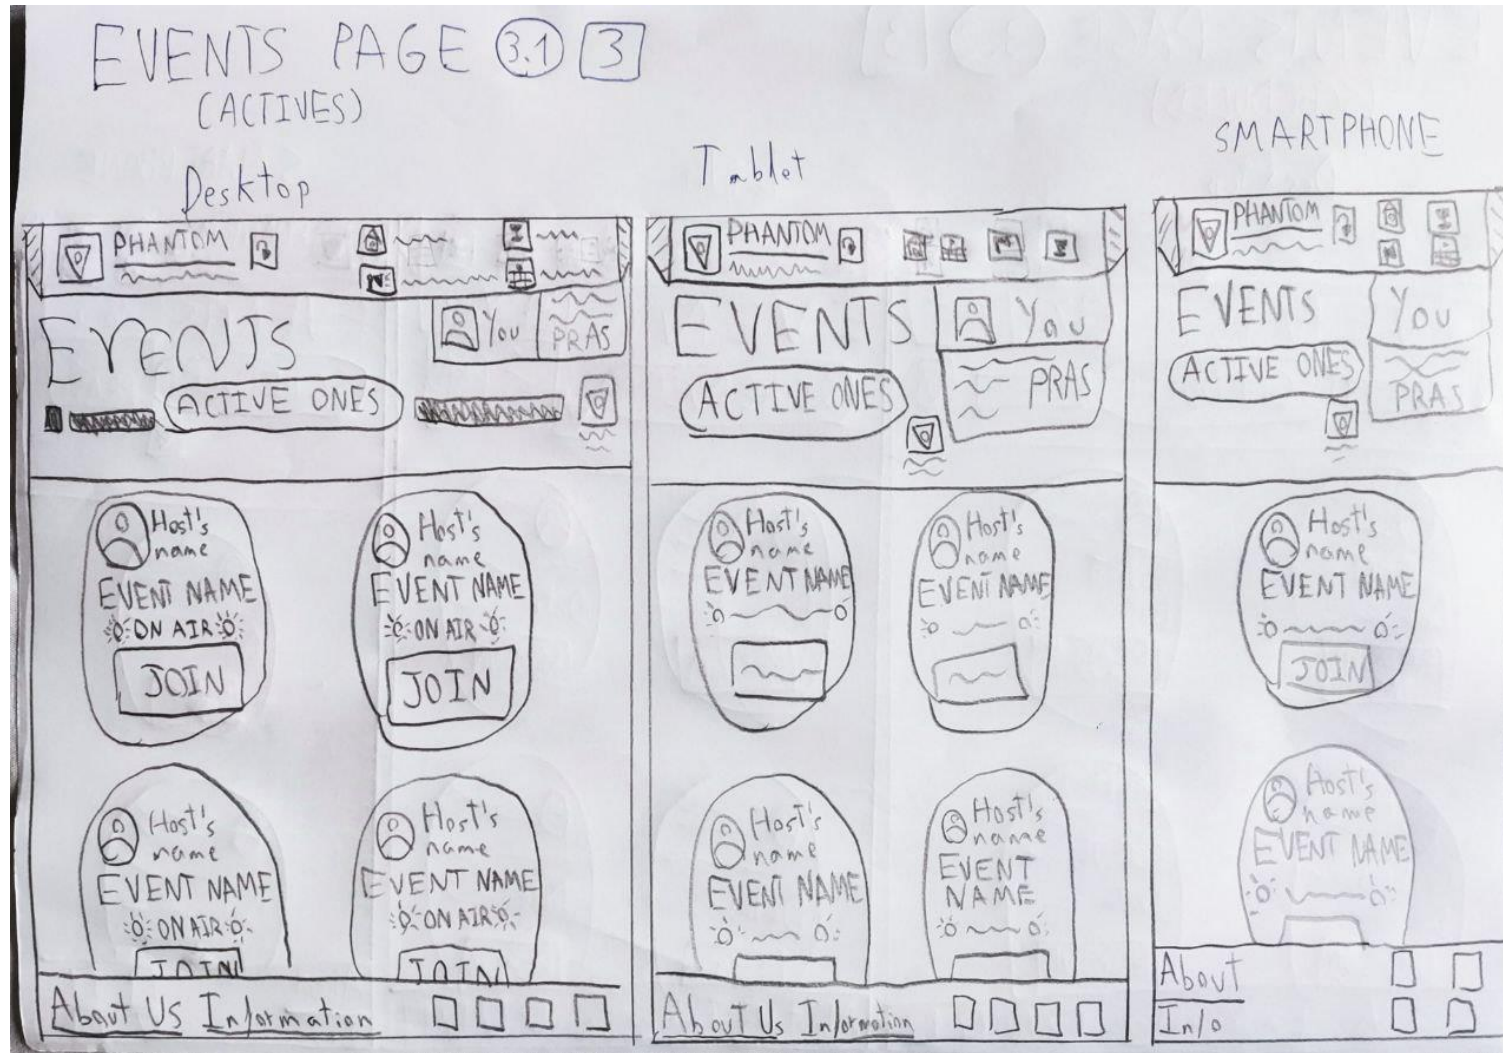 EVENTS PAGE 3.1 3
(ACTIVES)
Desktop
PHANTOM
EVENTS
You
PRAS
ACTIVE ONES
Host's
name
EVENT NAME
ON AIR
JOIN
Host's
name
EVENT NAME
ON AIR
JOIN
Host's
name
EVENT NAME
ON AIR
JOIN
Host's
name
EVENT NAME
ON AIR
JOIN
About Us Information
Tablet
PHANTOM
EVENTS
You
PRAS
ACTIVE ONES
Host's
name
EVENT NAME
Host's
name
EVENT NAME
Host's
name
EVENT NAME
Host's
name
EVENT
NAME
About Us Information
SMARTPHONE
PHANTOM
EVENTS
You
PRAS
ACTIVE ONES
Host's
name
EVENT NAME
JOIN
Host's
name
EVENT NAME
About
Info